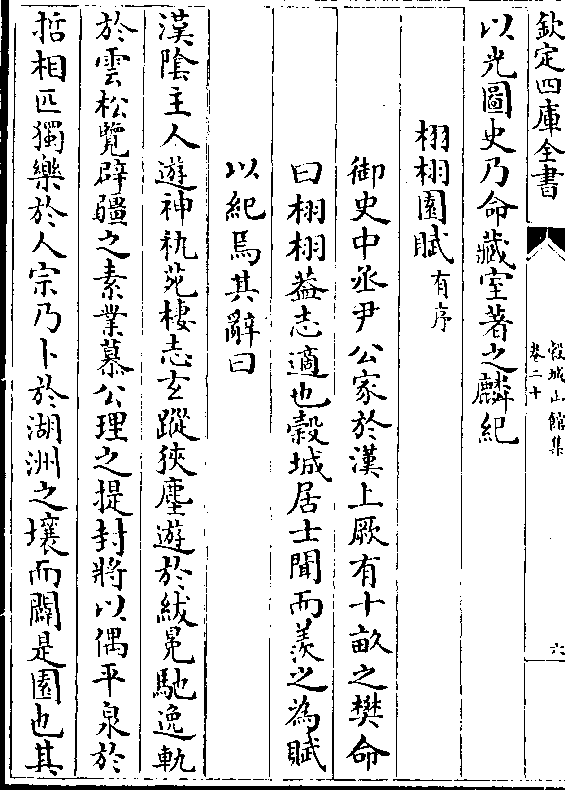 欽定四庫全書
穀城山館集
卷二十
六
以光圖史乃命藏室著之麟紀
栩栩園賦有序
御史中丞尹公家於漢上厥有十畝之樊命
曰栩栩葢志適也穀城居士聞而羨之為賦
以紀焉其辭曰
漢陰主人遊神執苑棲志玄蹤狹塵遊於紱冕馳逸軌
於雲松覽辟疆之素業慕公理之提封將以偶平泉於
哲相匹獨樂於人宗乃卜於湖洲之壤而闢是園也其